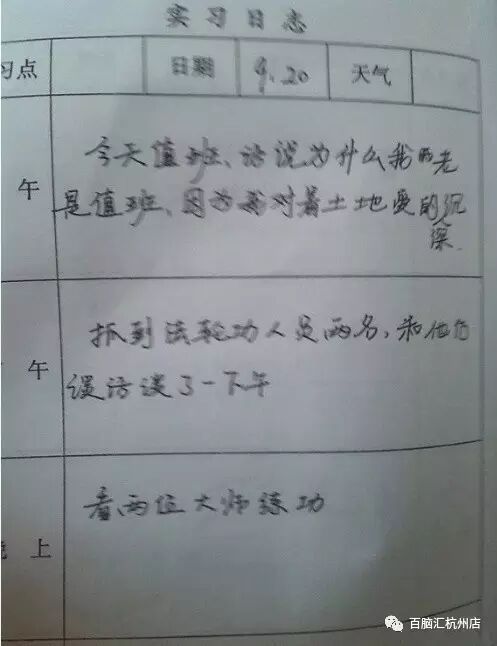 实习日志
习点 日期 9.20 天气
今天值班、话说为什么我的老
午
是值班、因为我对着土地爱的沉
深.
抓到法轮功人员两名，和他们
午
谈话谈了一下午
看两位大师练功
上
百脑汇杭州店